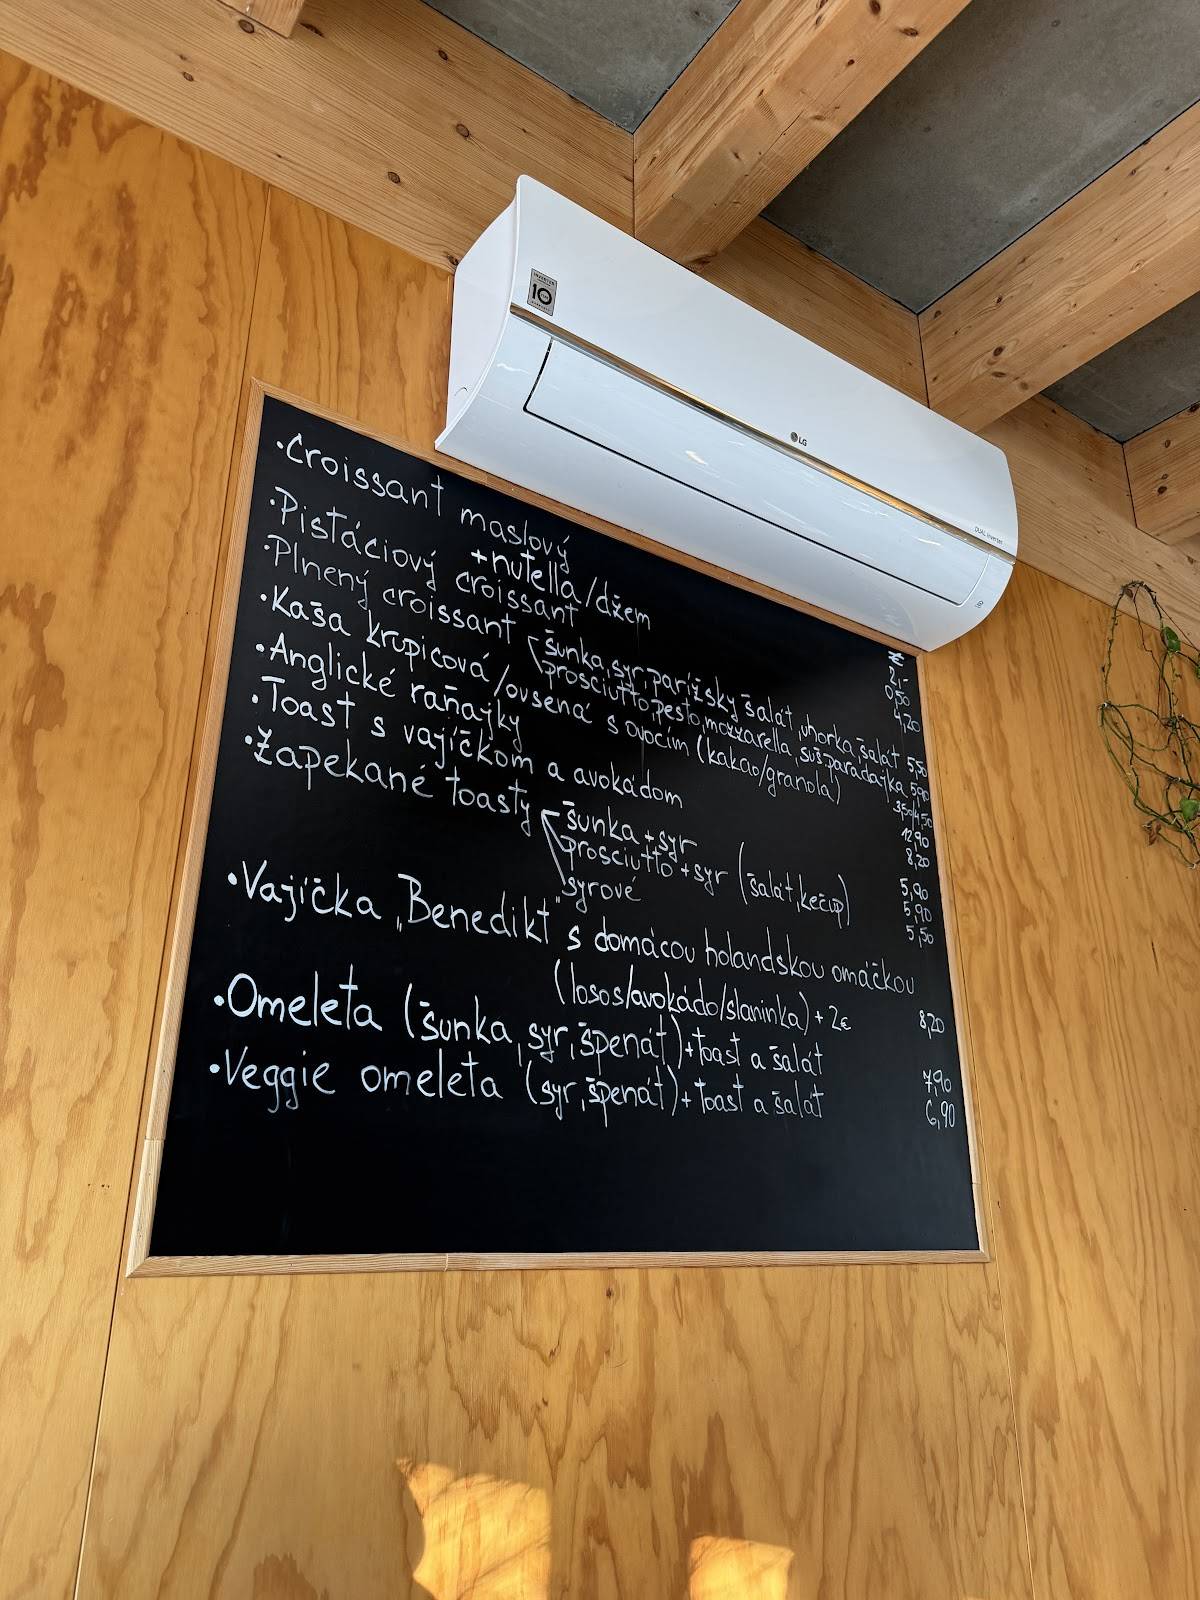 INVERTER
10
LG
DUAL Inverter
€
• Croissant maslový 2,-
+ nutella/džem 0,50
• Pistáciový croissant 4,20
• Plnený croissant šunka, syr, parížsky šalát, uhorka, šalát 5,50
prosciutto, pesto, mozzarella, suš.paradajka 5,90
• Kaša krupicová/ovsená s ovocím (kakao/granola) 3,50/4,50
• Anglické raňajky 12,90
• Toast s vajíčkom a avokádom 8,20
• Zapekané toasty šunka + syr 5,90
prosciutto + syr (šalát, kečup) 5,90
syrové 5,50
• Vajíčka „Benedikt" s domácou holandskou omáčkou 8,20
(losos/avokádo/slaninka) + 2€
• Omeleta (šunka, syr, špenát) + toast a šalát 7,90
• Veggie omeleta (syr, špenát) + toast a šalát 6,90